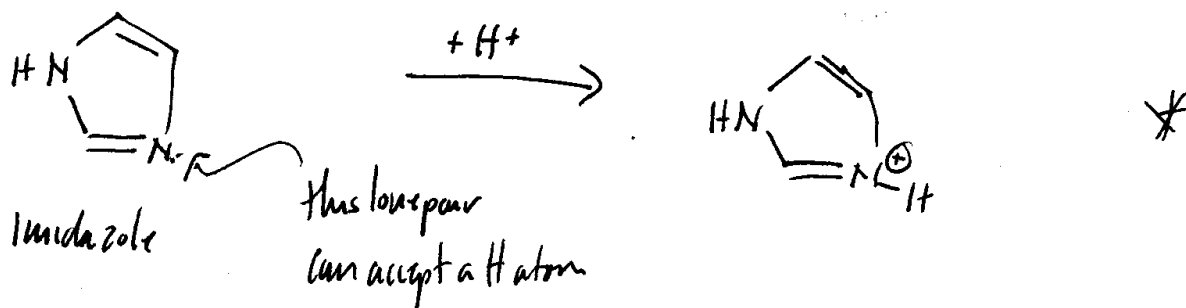 + H+
H N
N:
HN
N
⊕
H
*
Imidazole
this lone pair
can accept a H atom